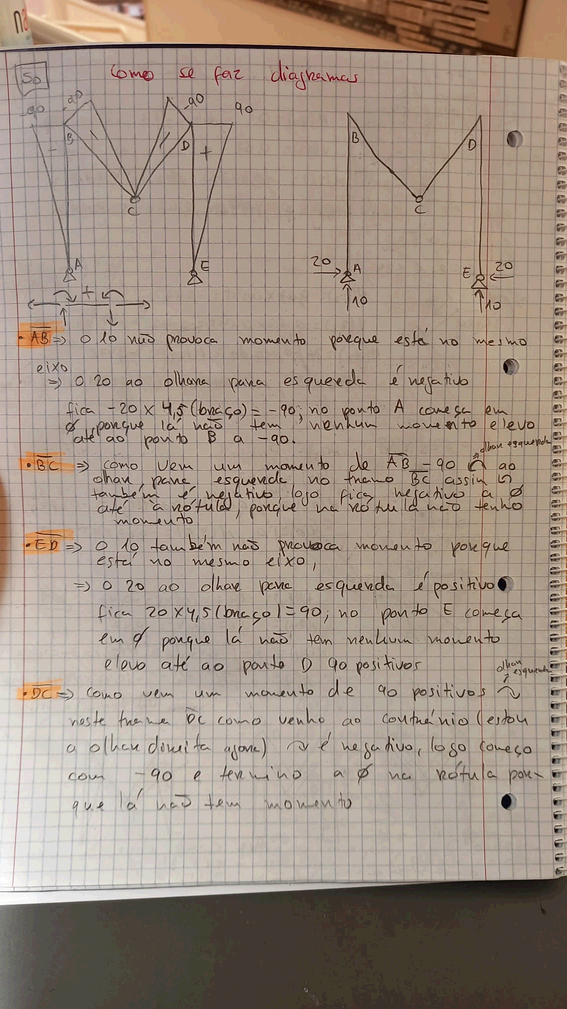 na
50
Como se faz diagramas
-90
-90
-90
90
B
D
C
A
E
+
-
+
B
D
C
20
A
10
E
20
10
• AB => O 10 não provoca momento porque está no mesmo
eixo
=> O 20 ao olhar para esquerda é negativo
fica -20 x 4,5 (braço) = -90; no ponto A começa em
ø porque lá não tem nenhum momento e levo
até ao ponto B a -90.
olhar esquerda
• BC => como vem um momento de AB -90 ao
olhar para esquerda no tramo BC assim
também é negativo logo fica negativo a ø
até à rótula, porque na rótula não tenho
momento
• ED => O 10 também não provoca momento porque
está no mesmo eixo,
=> O 20 ao olhar para esquerda é positivo
fica 20 x 4,5 (braço) = 90; no ponto E começa
em ø porque lá não tem nenhum momento
e levo até ao ponto D 90 positivos
olhar esquerda
• DC => Como vem um momento de 90 positivos
neste tramo DC como venho ao contrário (estou
a olhar direita agora) é negativo, logo começo
com -90 e termino a ø na rótula por-
que lá não tem momento